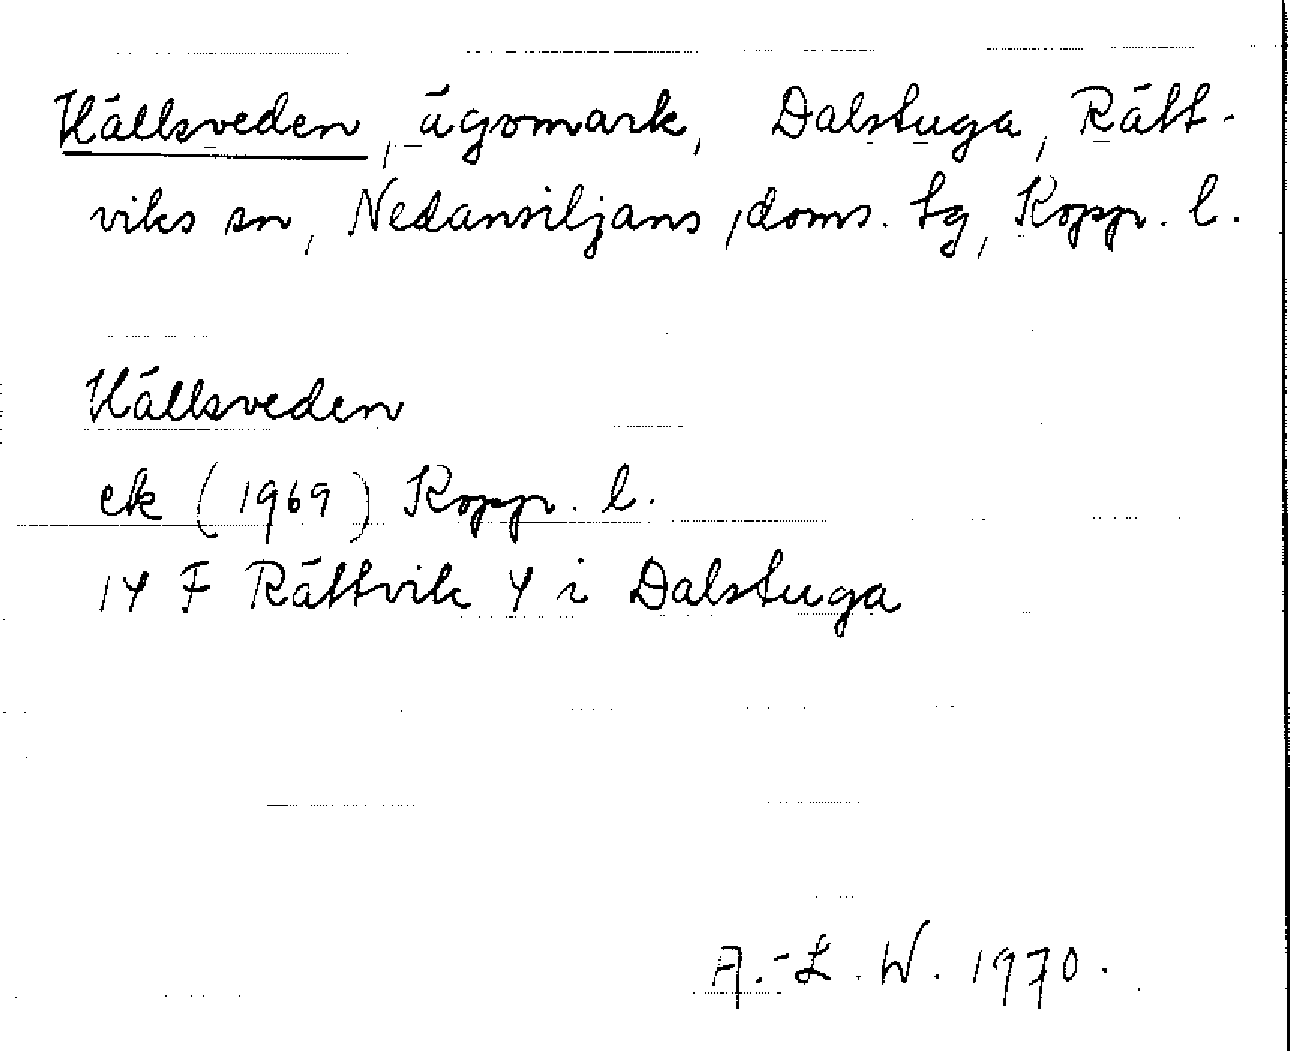 Hällsveden, ägomark, Dalstuga, Rätt-
viks sn, Nedansiljans doms. tg, Kopp. l.
Hällsveden
ek (1969) Kopp. l.
14 F Rättvik 4 i Dalstuga
A.-L. W. 1970.